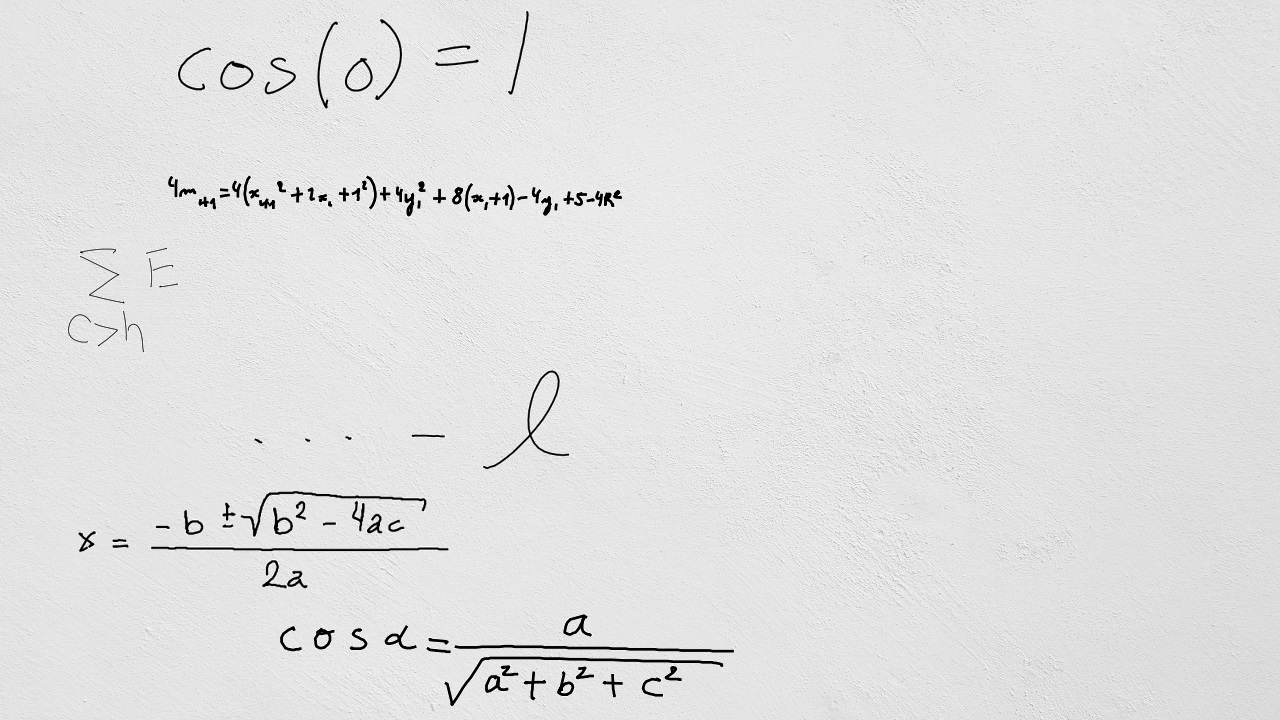 cos(0) = 1
4m_{i+1} = 4(x_{i+1}^2 + 2x_i + 1^2) + 4y_i^2 + 8(x_i + 1) - 4y_i + 5 - 4R^2
\sum_{c>h} E
. . . - l
x = \frac{-b \pm \sqrt{b^2 - 4ac}}{2a}
cos α = \frac{a}{\sqrt{a^2 + b^2 + c^2}}